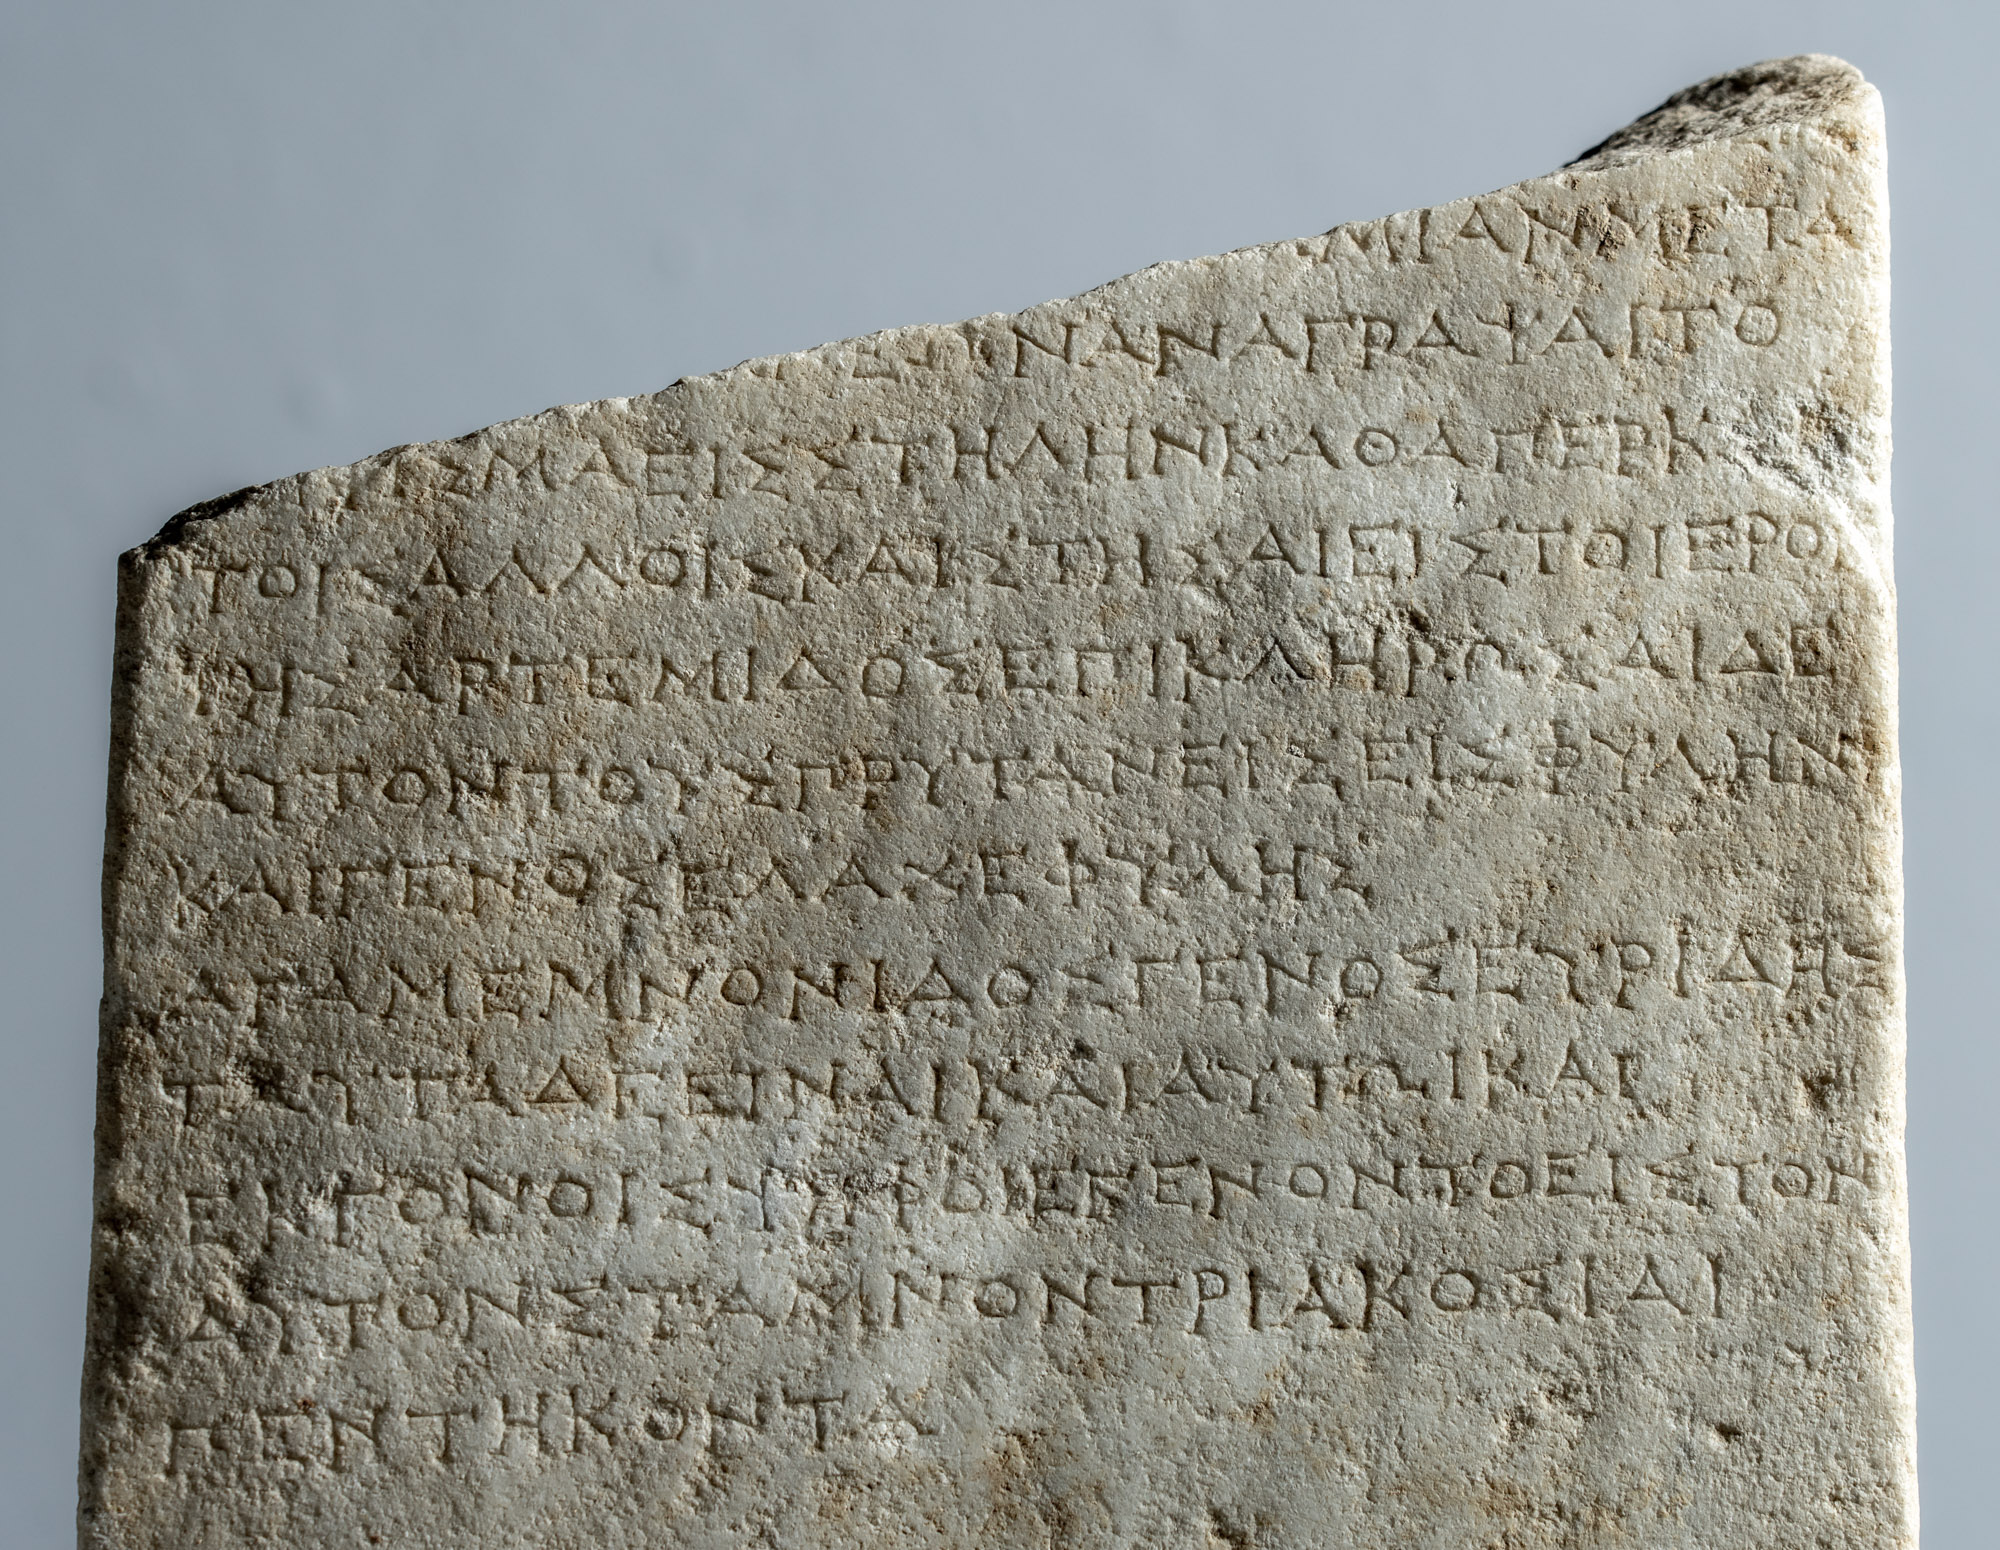 ΜΙΑΝΜΕΤΑ
ΝΑΝΑΓΡΑΨΑΙΤΟ
ΙΣΜΑΕΙΣΣΤΗΛΗΝΚΑΘΑΠΕΡΚ
ΤΟΙΣΑΛΛΟΙΣΚΑΙΣΤΗΣΑΙΕΙΣΤΟΙΕΡΟΝ
ΤΗΣΑΡΤΕΜΙΔΟΣΕΠΙΚΛΗΡΩΣΑΙΔΕ
ΑΥΤΟΝΤΟΥΣΠΡΥΤΑΝΕΙΣΕΙΣΦΥΛΗΝ
ΚΑΙΓΕΝΟΣΕΛΑΧΕΦΥΛΗΣ
ΑΓΑΜΕΜΝΟΝΙΔΟΣΓΕΝΟΣΕΥΡΙΔΗΣ
ΤΑΥΤΑΔΕΕΙΝΑΙΚΑΙΑΥΤΩΙΚΑΙ
ΕΚΓΟΝΟΙΣΥΠΡΟΙΕΓΕΝΟΝΤΟΕΙΣΤΟΝ
ΑΥΤΟΝΣΤΑΜΝΟΝΤΡΙΑΚΟΣΙΑΙ
ΠΕΝΤΗΚΟΝΤΑ